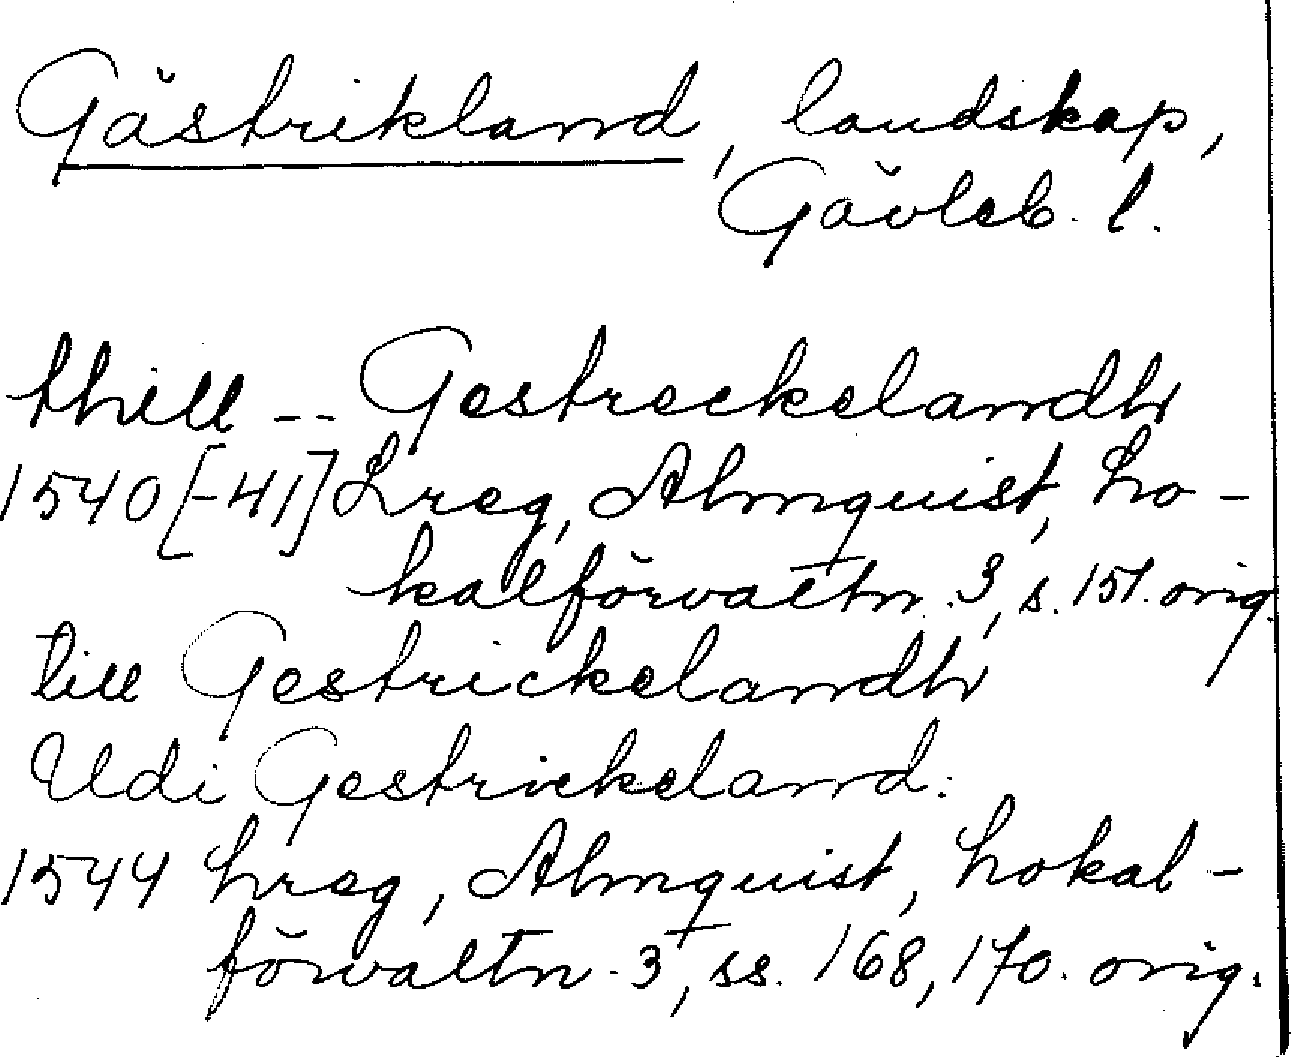 Gästrikland, landskap,
Gävleb. l.
thill -- Gestreckelandh
1540 [-41] Lreg, Almquist, Lo-
kalförvaltn. 3, s. 151. orig.
till Gestrickelandh
Udi Gestrickeland:
1544 Lreg, Almquist, Lokal-
förvaltn. 3, ss. 168, 170. orig.